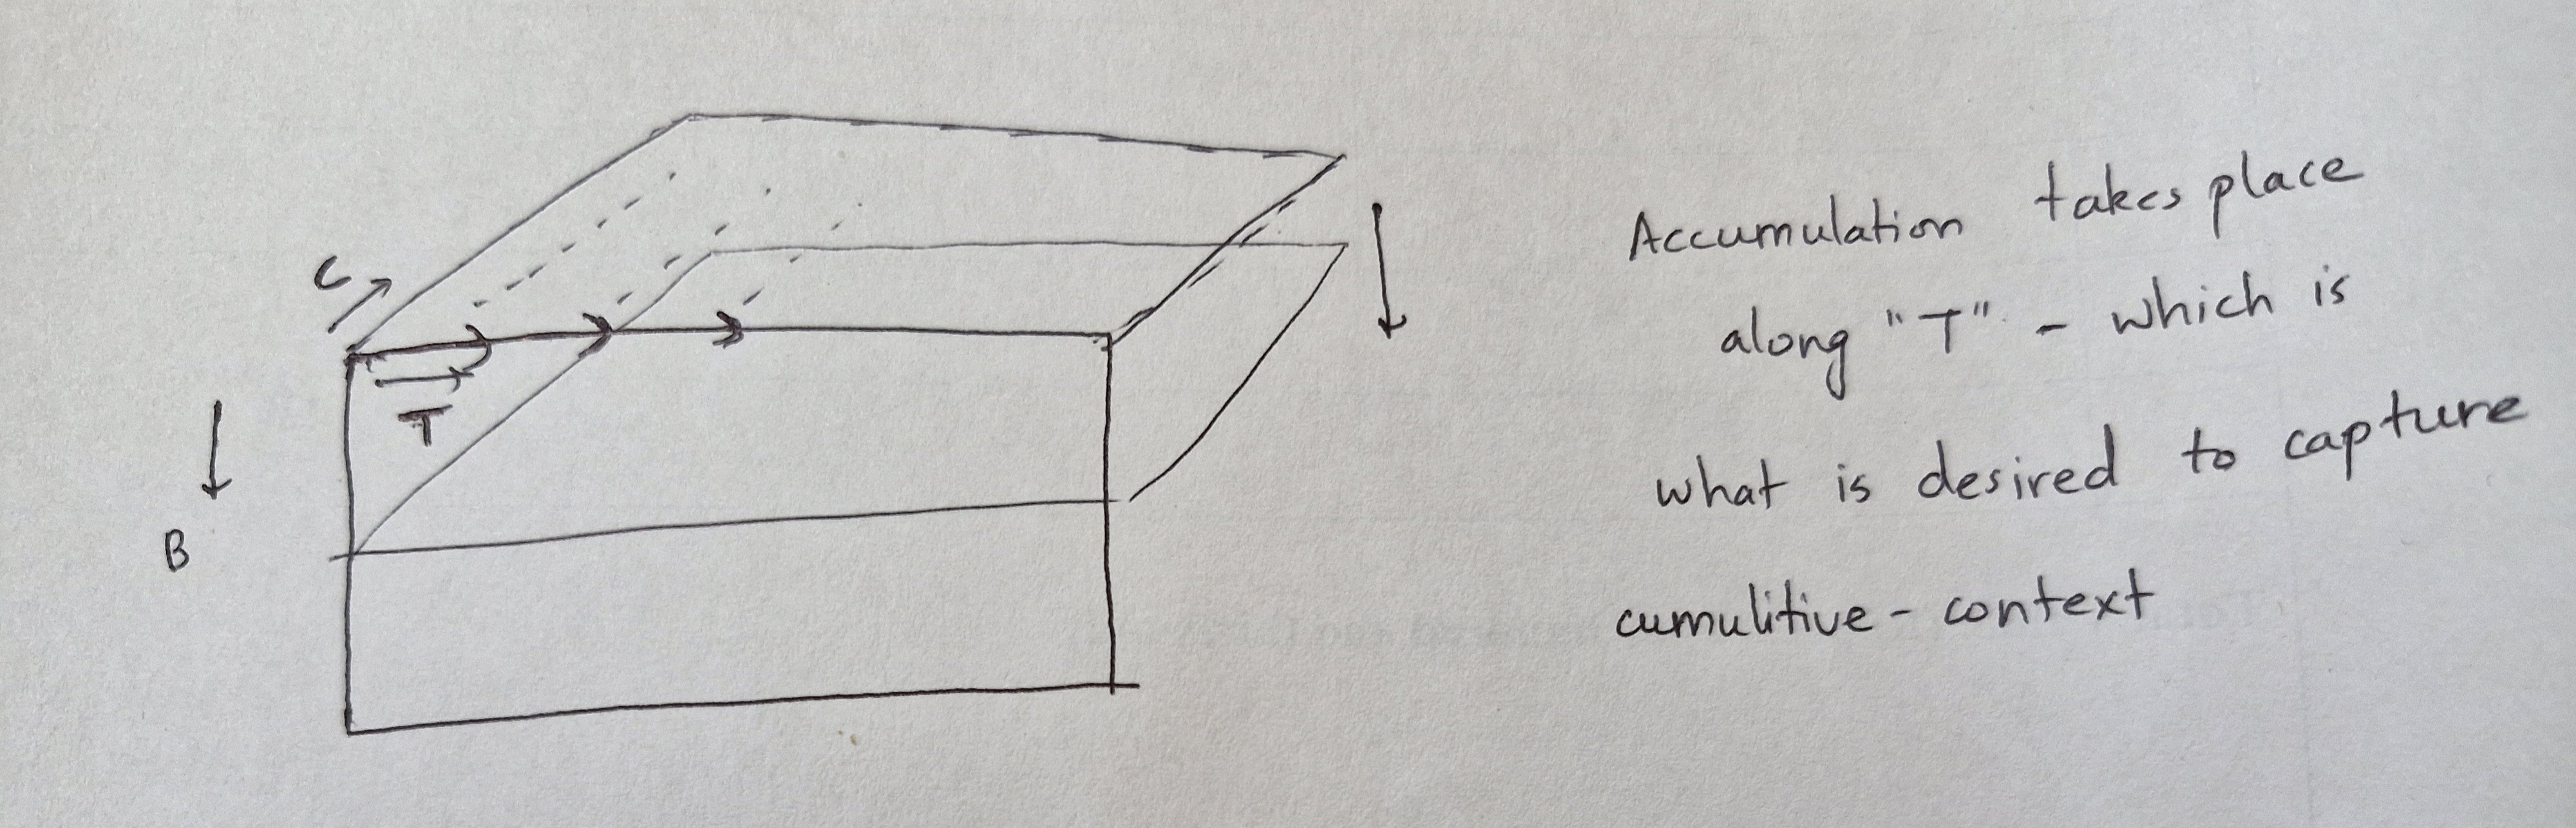 C
T
B
Accumulation takes place
along "T" - which is
what is desired to capture
cumulitive - context